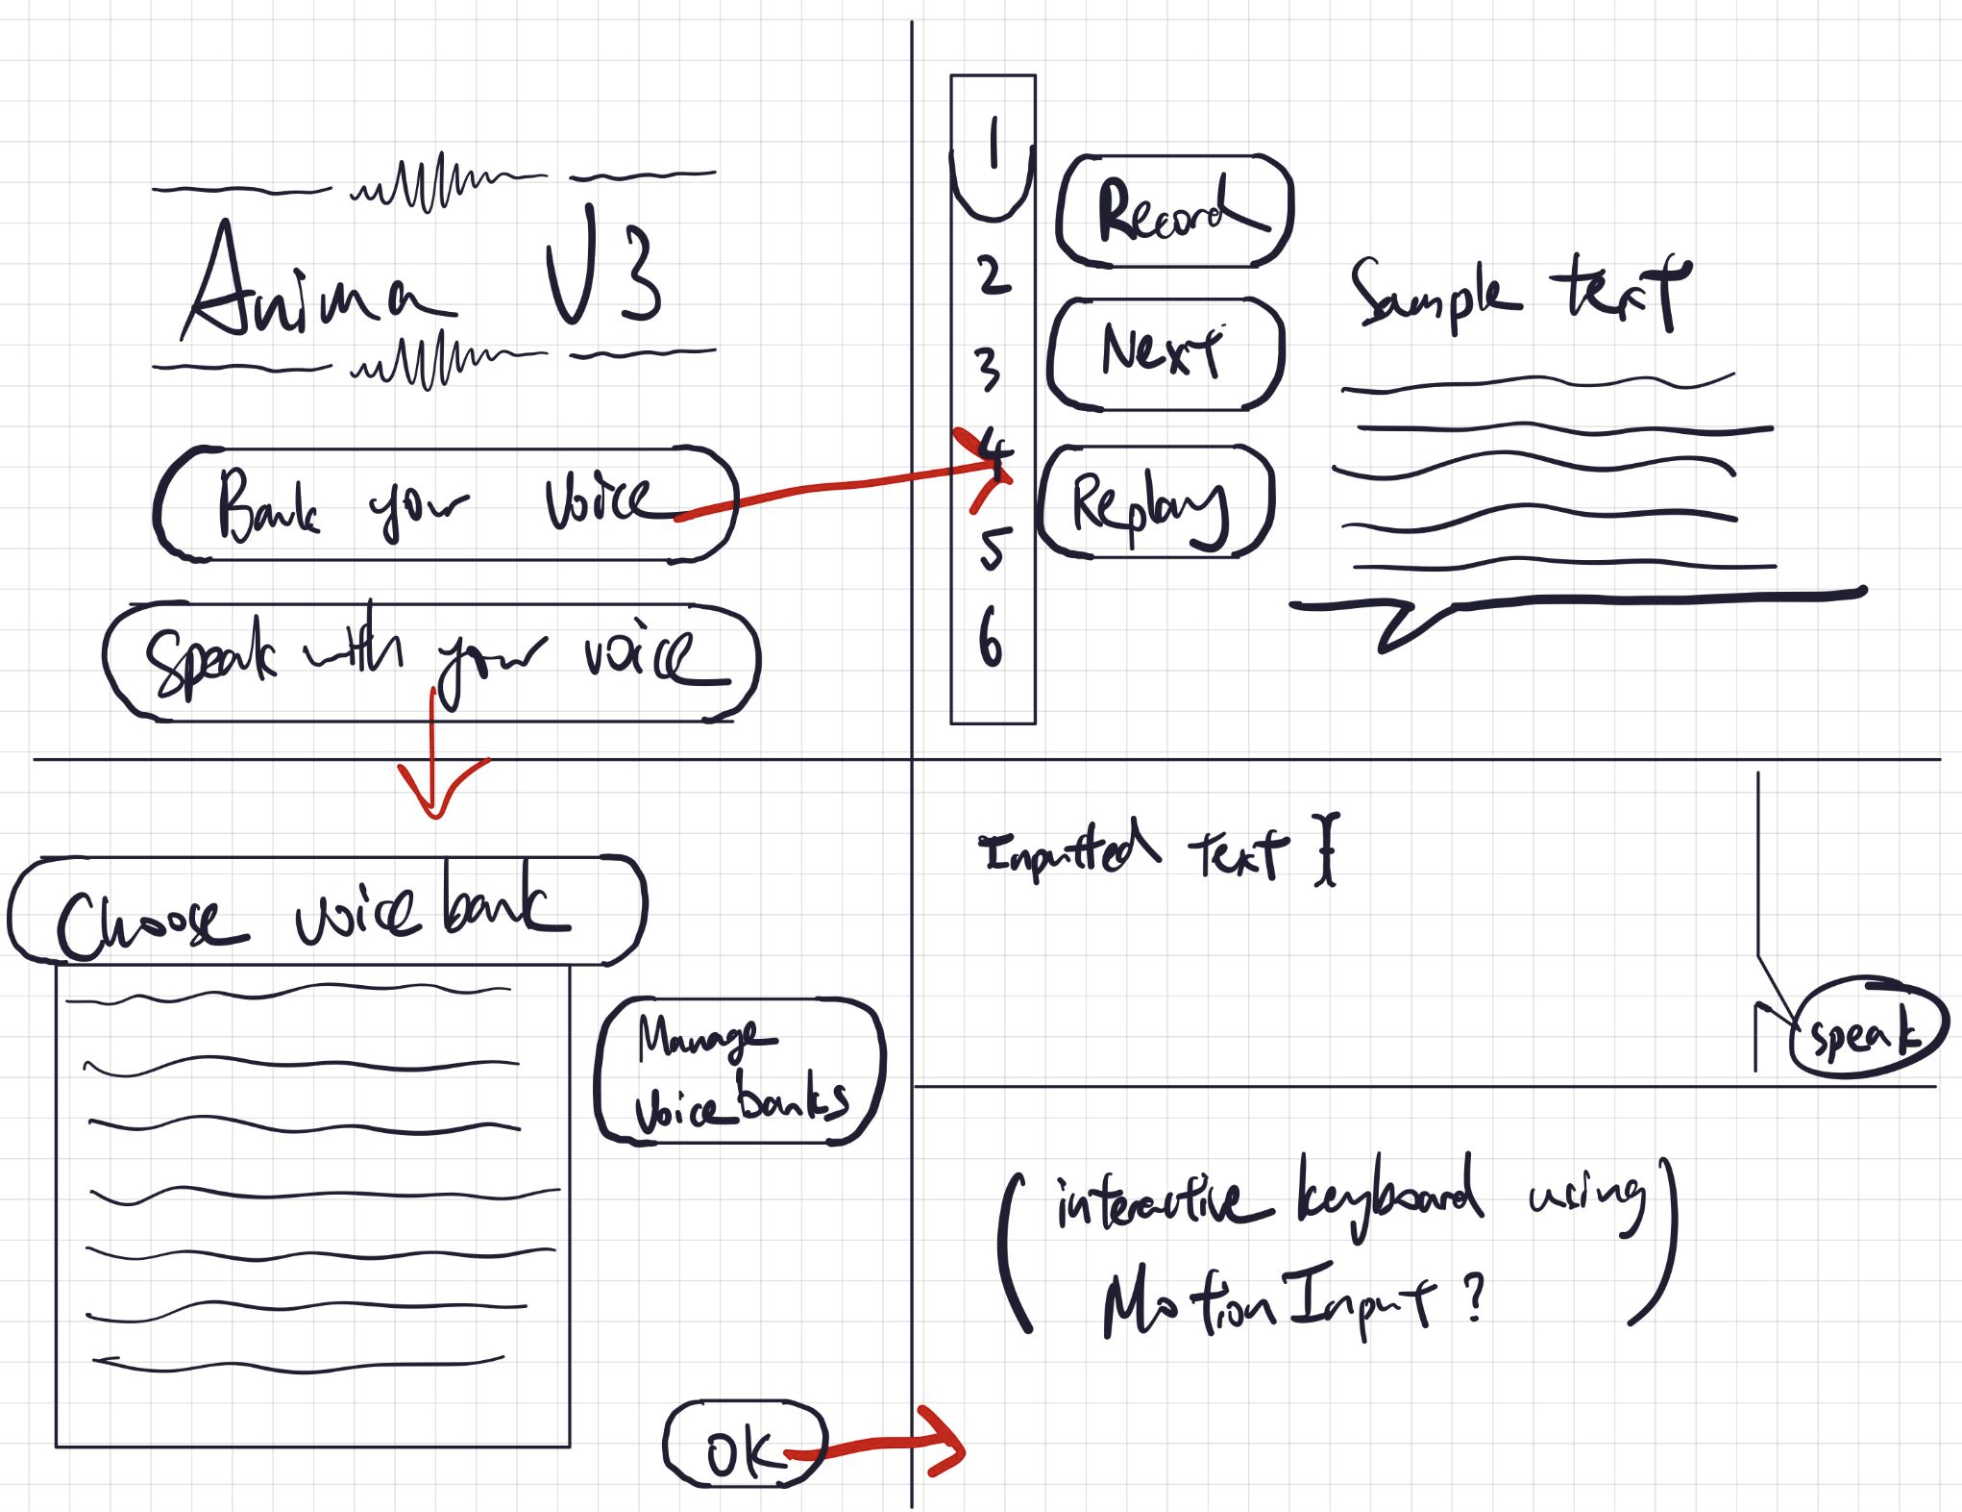 Anima V3
Bank your Voice
Speak with your voice
1
2
3
4
5
6
Record
Next
Replay
Sample text
Choose voice bank
Manage
Voice banks
OK
Inputted text
speak
(interactive keyboard using
MotionInput?)